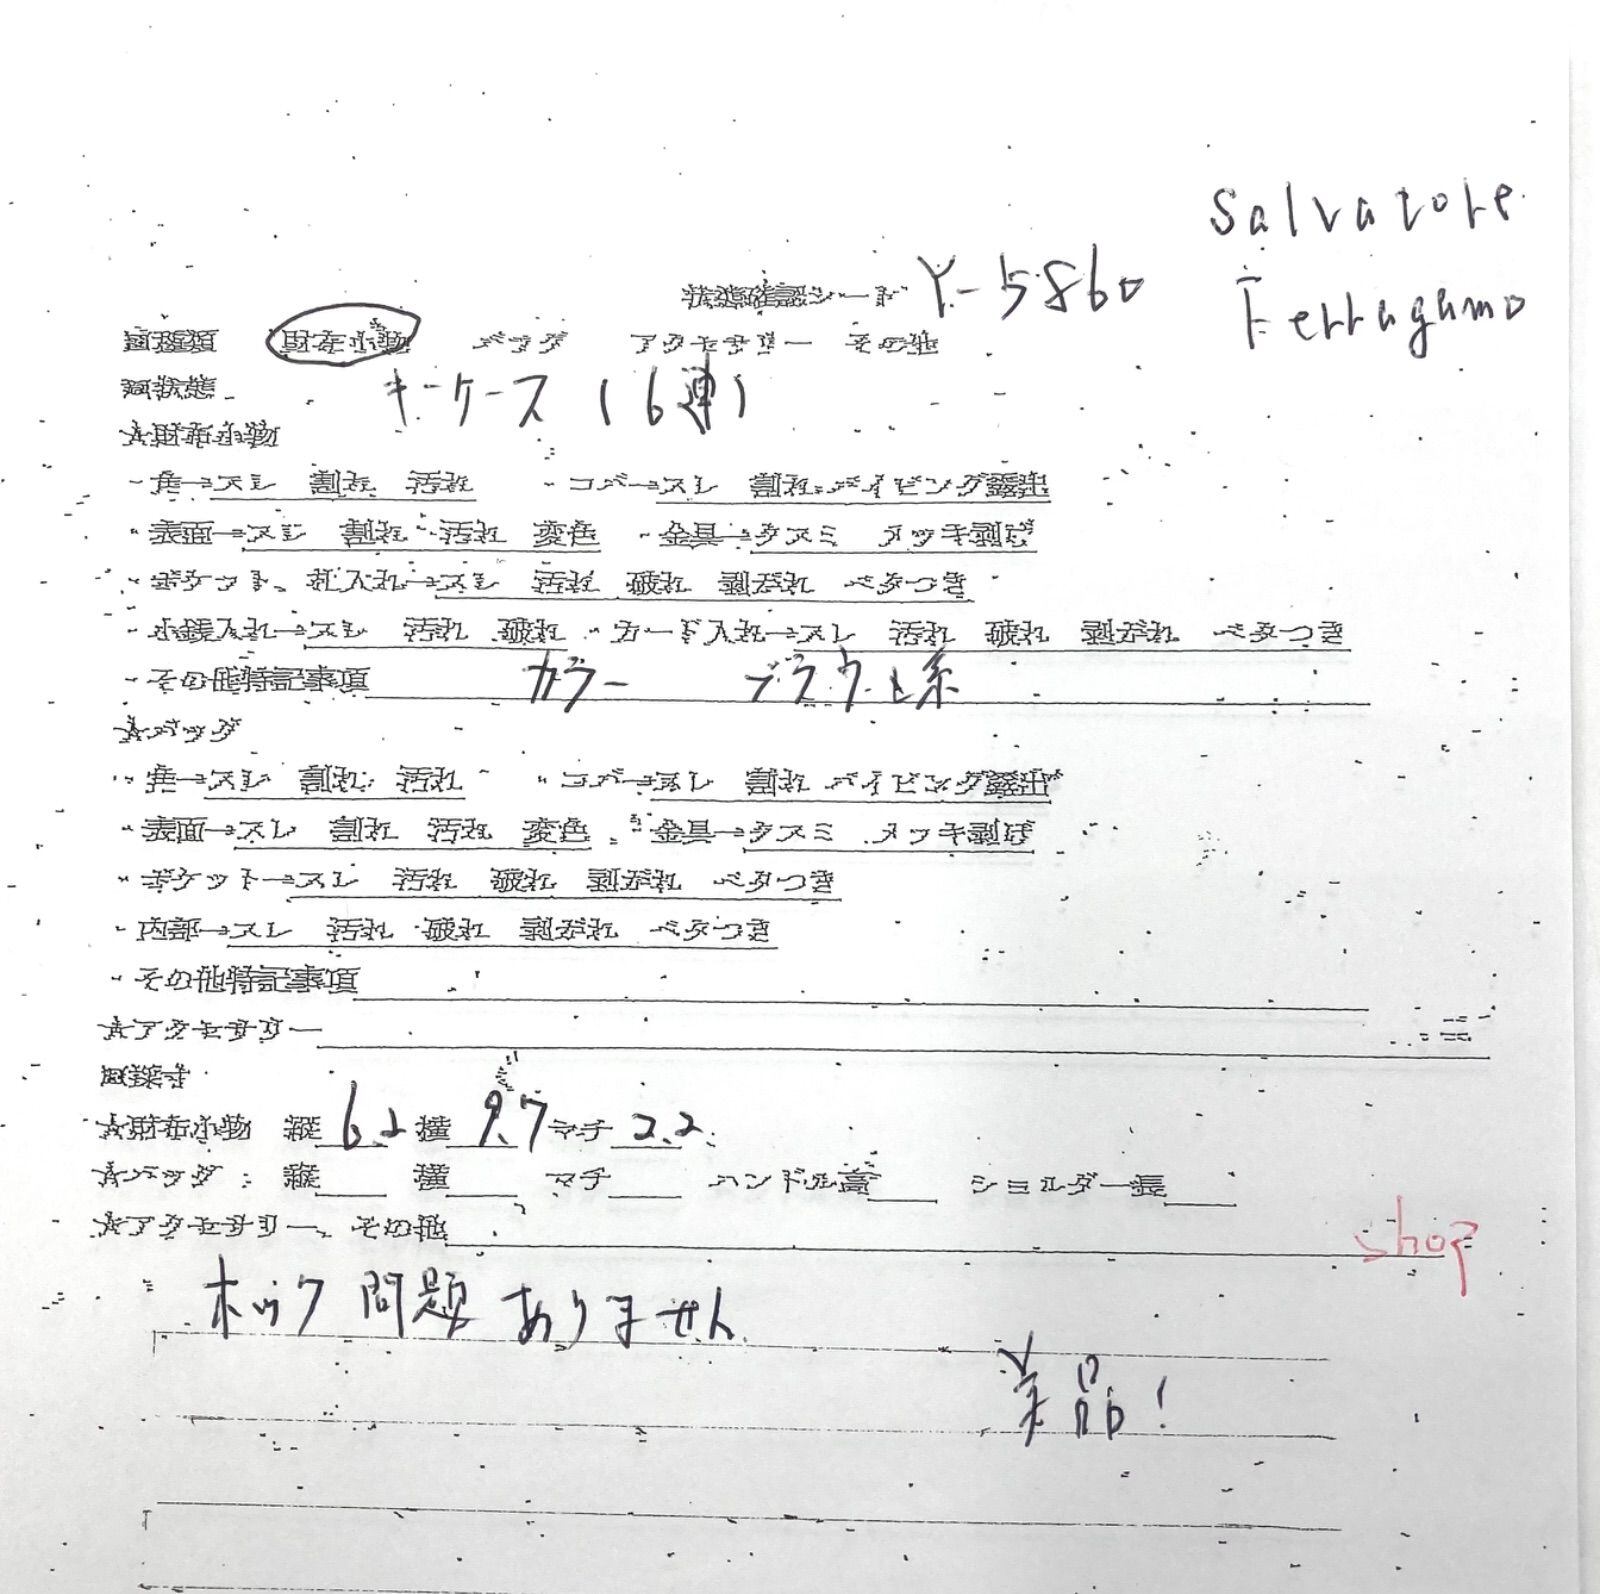 Salvatore
Ferragamo
状態確認シート Y-5860
財布小物 バッグ アクセサリー その他
状態
キーケース (6連)
☆財布小物
・角→スレ 割れ 汚れ ・コバ→スレ 割れ パイピング露出
・表面→スレ 割れ 汚れ 変色 ・金具→クスミ メッキ剥げ
・ポケット、札入れ→スレ 汚れ 破れ 剥がれ ベタつき
・小銭入れ→スレ 汚れ 破れ ・カード入れ→スレ 汚れ 破れ 剥がれ ベタつき
・その他特記事項 カラー ブラウン系
☆バッグ
・角→スレ 割れ 汚れ ・コバ→スレ 割れ パイピング露出
・表面→スレ 割れ 汚れ 変色 ・金具→クスミ メッキ剥げ
・ポケット→スレ 汚れ 破れ 剥がれ ベタつき
・内部→スレ 汚れ 破れ 剥がれ ベタつき
・その他特記事項
☆アクセサリー
☆財布小物 縦 6.2 横 9.7 マチ 2.2
☆バッグ : 縦 横 マチ ハンドル高 ショルダー長
☆アクセサリー、その他
shop
ホック問題ありません
美品!